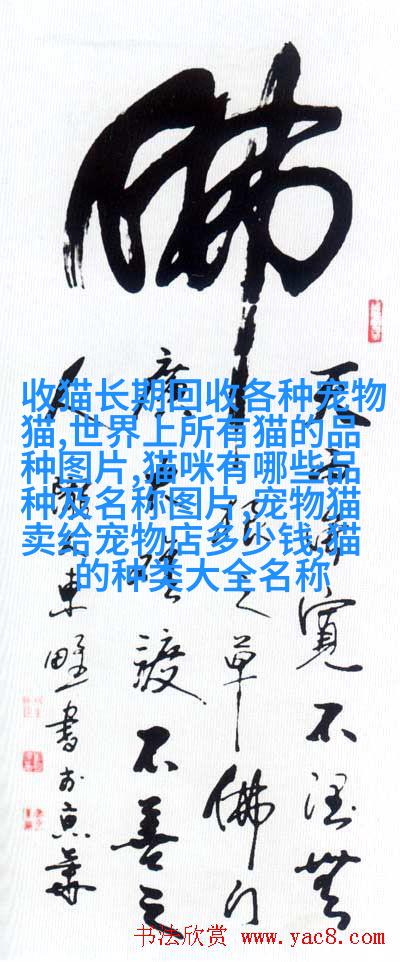 佛
天雨虽宽不润无
根之草佛门
广大难渡不善之
人
东野书于京华
收猫长期回收各种宠物
猫,世界上所有猫的品
种图片,猫咪有哪些品
种及名称图片,宠物猫
卖给宠物店多少钱,猫
的种类大全名称
书法欣赏 www.yac8.com